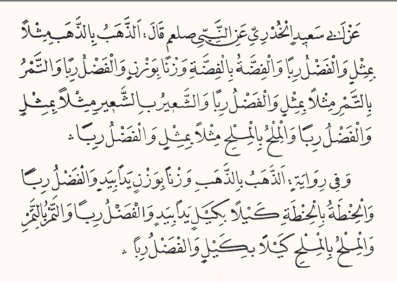 عَنْ أَبِي سَعِيدٍ الْخُدْرِيِّ عَنِ النَّبِيِّ صلعم قَالَ: اَلذَّهَبُ بِالذَّهَبِ مِثْلًا
بِمِثْلٍ وَالْفَضْلُ رِبًا وَالْفِضَّةُ بِالْفِضَّةِ وَزْنًا بِوَزْنٍ وَالْفَضْلُ رِبًا وَالتَّمْرُ
بِالتَّمْرِ مِثْلًا بِمِثْلٍ وَالْفَضْلُ رِبًا وَالشَّعِيرُ بِالشَّعِيرِ مِثْلًا بِمِثْلٍ
وَالْفَضْلُ رِبًا وَالْمِلْحُ بِالْمِلْحِ مِثْلًا بِمِثْلٍ وَالْفَضْلُ رِبًا.
وَفِي رِوَايَةٍ: اَلذَّهَبُ بِالذَّهَبِ وَزْنًا بِوَزْنٍ يَدًا بِيَدٍ وَالْفَضْلُ رِبًا
وَالْحِنْطَةُ بِالْحِنْطَةِ كَيْلًا بِكَيْلٍ يَدًا بِيَدٍ وَالْفَضْلُ رِبًا وَالتَّمْرُ بِالتَّمْرِ
وَالْمِلْحُ بِالْمِلْحِ كَيْلًا بِكَيْلٍ وَالْفَضْلُ رِبًا.